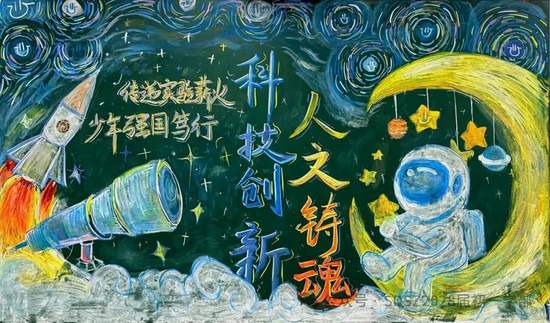 传递实验薪火
少年强国笃行
科技创新
人文铸魂